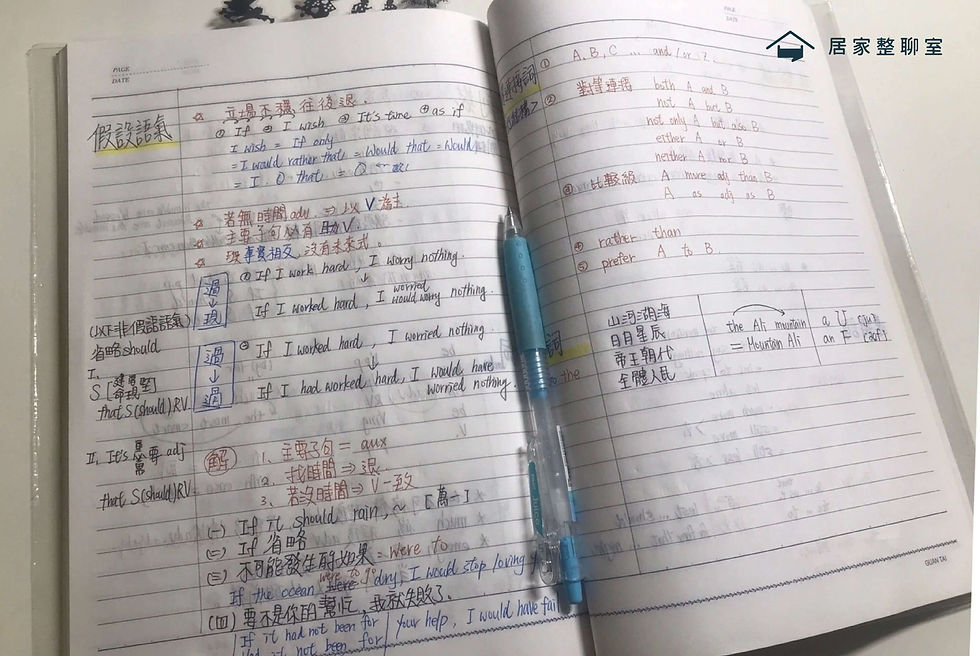 居家整聊室
PAGE
DATE
假設語氣
☆ 立場不穩,往後退.
① If ② I wish ③ It's time ④ as if
I wish = If only
= I would rather that = Would that = Would
= I. O that = O
☆ 若無時間adv. ⇒ 以 V 為主.
☆ 主要子句必有助V.
☆ 與事實相反,沒有未來式。
過↓現
① If I work hard, I worry nothing.
↓
worried
If I worked hard, I would worry nothing.
過↓過
② If I worked hard, I worried nothing.
↓
If I had worked hard, I would have
worried nothing.
省略should
I.
S
that S(should)RV
II. It's 要 adj
that S(should)RV.
解
1. 主要子句 = aux
2. 找時間 ⇒ 退
3. 若沒時間 ⇒ V一致
(一) If it should rain, ~ [萬一]
(二) If 省略
(三) 不可能發生的如果 = were to
were to go
If the ocean were dry, I would stop loving
(四) 要不是你的幫忙,我就失敗了.
If it had not been for your help, I would have fail
Had it not been for
PAGE
DATE
① A, B, C ... and / or Z.
② 對等連接 both A and B
not A but B
not only A but also B
either A or B
neither A nor B
③ 比較級 A more adj than B
A as adj as B
④ rather than
⑤ prefer A to B.
詞
to the
山河湖海
日月星辰
帝王朝代
全體人民
the Ali mountain
= Mountain Ali
a U
an F
GUAN TAI